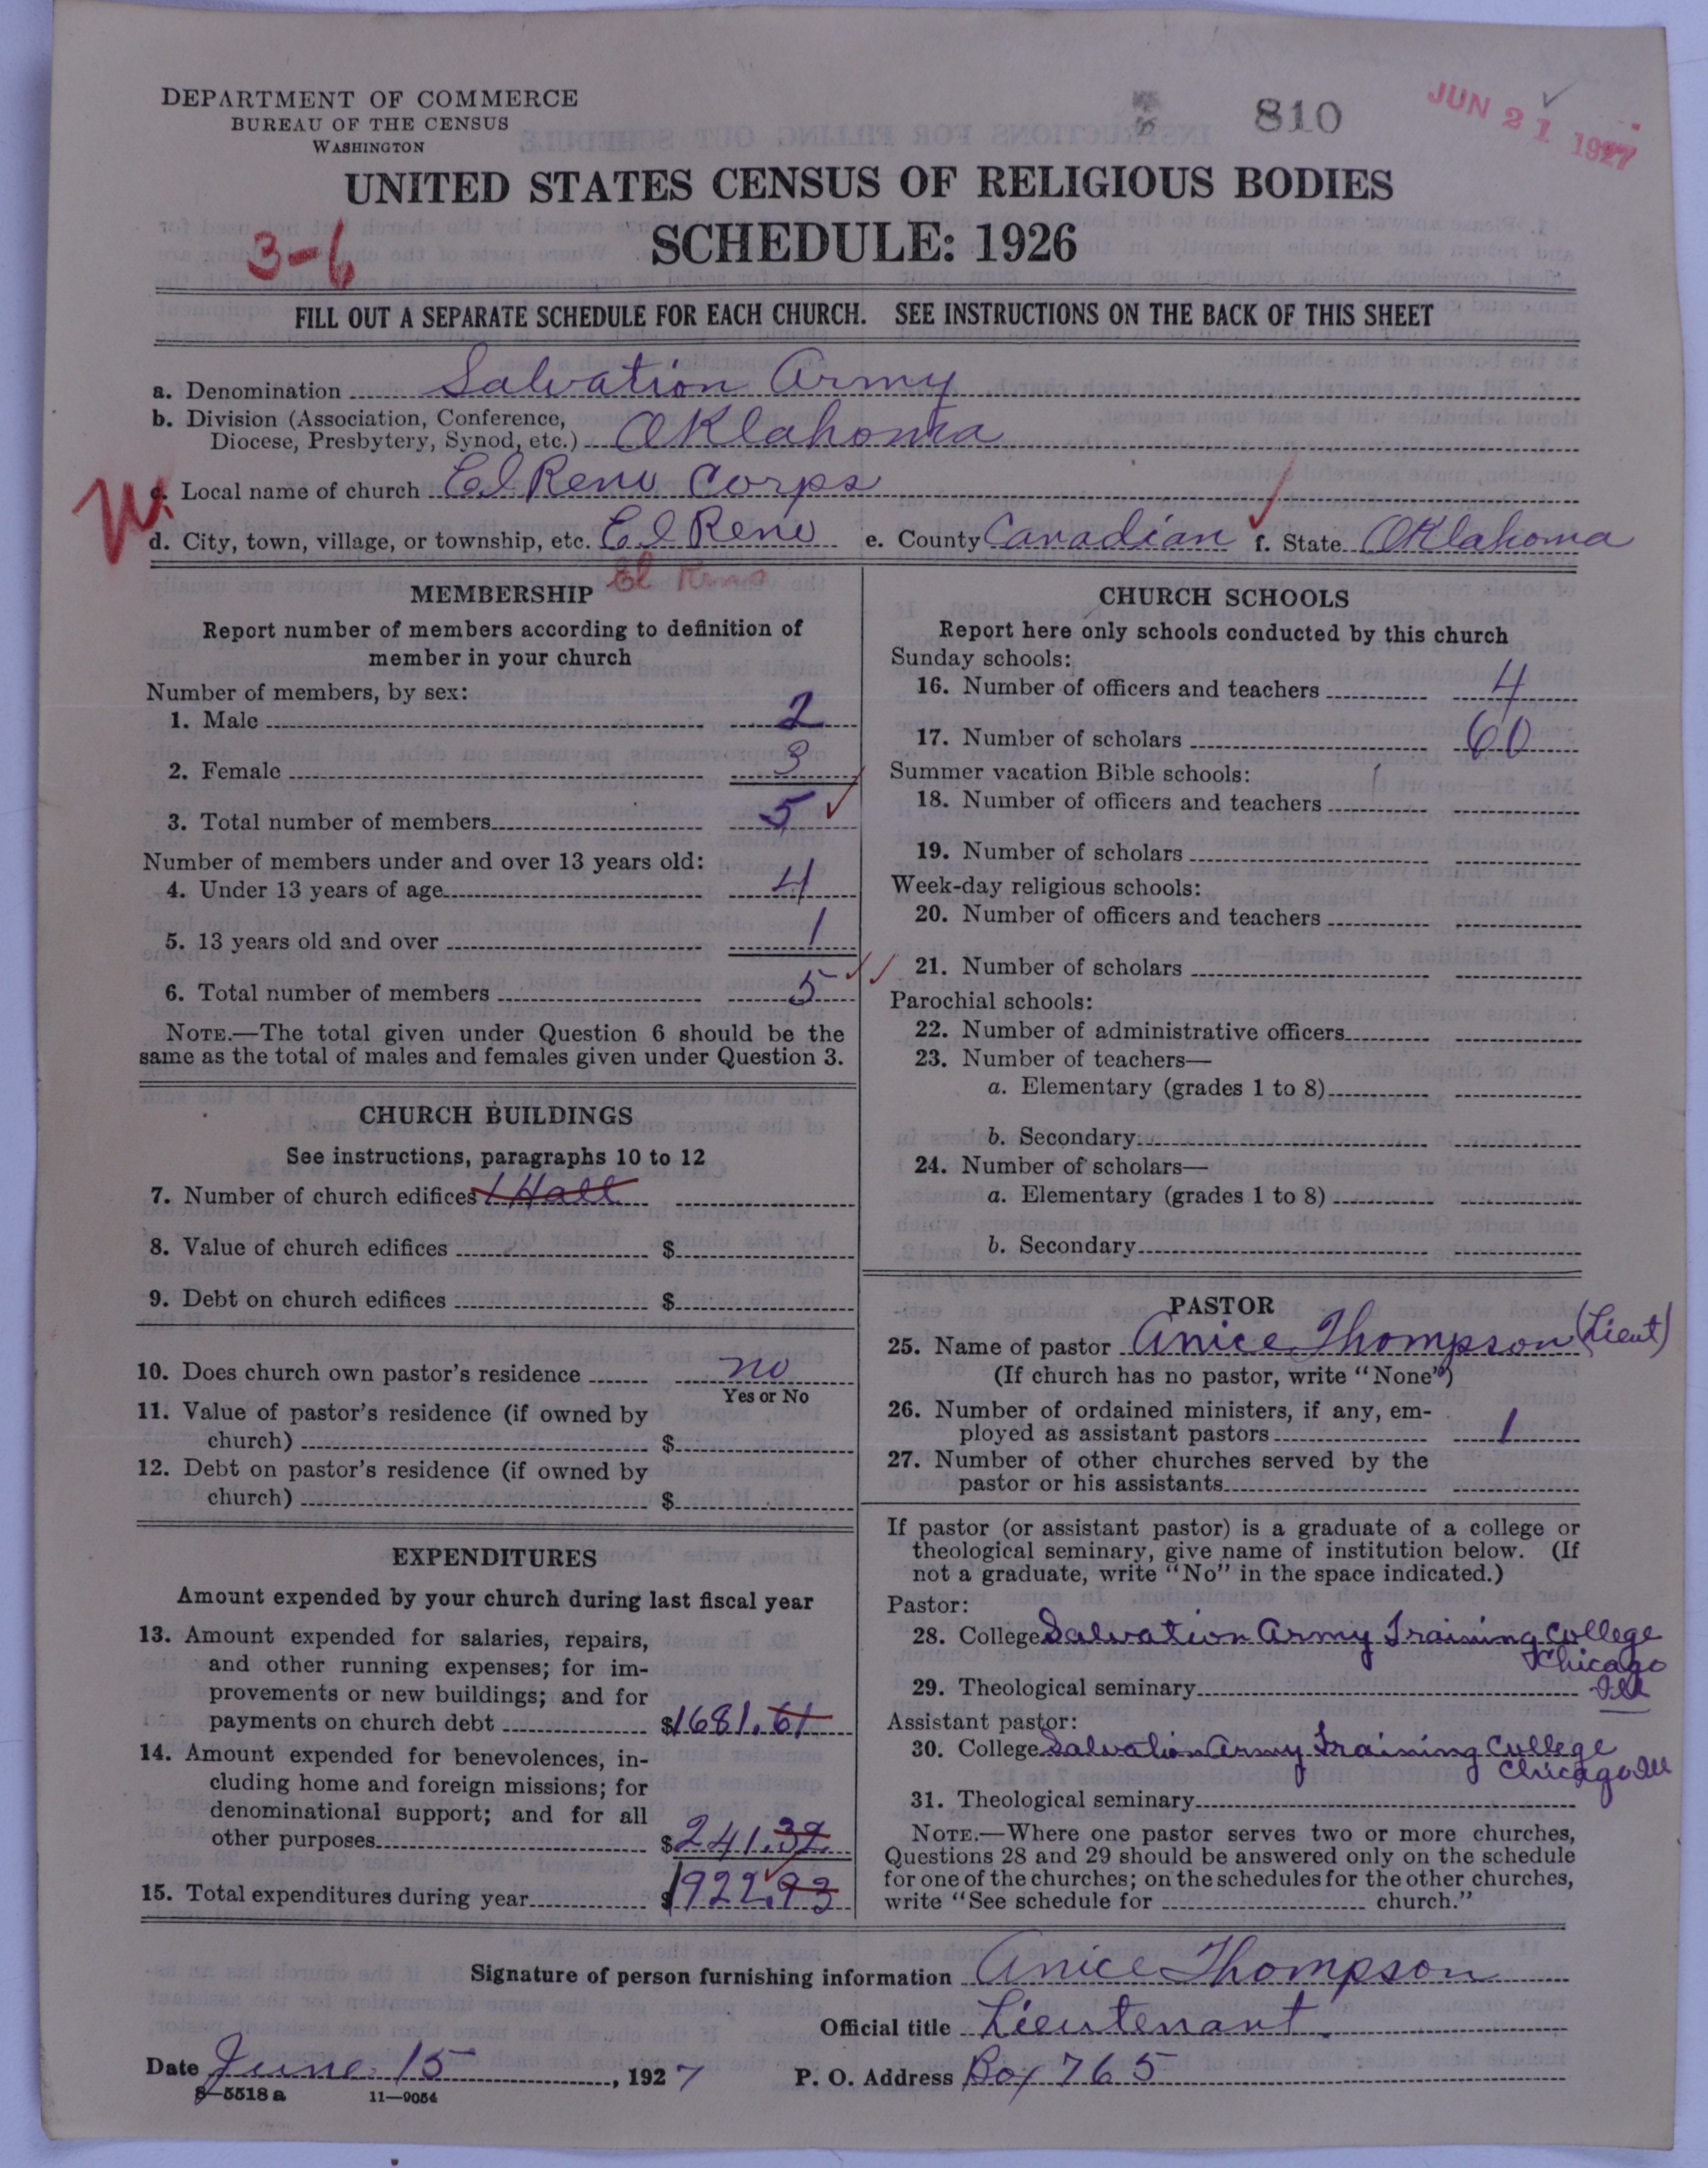 DEPARTMENT OF COMMERCE
BUREAU OF THE CENSUS
WASHINGTON
810
JUN 21 1927
UNITED STATES CENSUS OF RELIGIOUS BODIES
SCHEDULE: 1926
3-6
FILL OUT A SEPARATE SCHEDULE FOR EACH CHURCH. SEE INSTRUCTIONS ON THE BACK OF THIS SHEET
a. Denomination Salvation Army
b. Division (Association, Conference,
Diocese, Presbytery, Synod, etc.) Oklahoma
c. Local name of church El Reno Corps
d. City, town, village, or township, etc. El Reno e. County Canadian f. State Oklahoma
El Reno
MEMBERSHIP
Report number of members according to definition of
member in your church
Number of members, by sex:
1. Male 2
2. Female 3
3. Total number of members 5
Number of members under and over 13 years old:
4. Under 13 years of age 4
5. 13 years old and over 1
6. Total number of members 5
NOTE.—The total given under Question 6 should be the
same as the total of males and females given under Question 3.
CHURCH BUILDINGS
See instructions, paragraphs 10 to 12
7. Number of church edifices 1 Hall
8. Value of church edifices $
9. Debt on church edifices $
10. Does church own pastor's residence no
Yes or No
11. Value of pastor's residence (if owned by
church) $
12. Debt on pastor's residence (if owned by
church) $
EXPENDITURES
Amount expended by your church during last fiscal year
13. Amount expended for salaries, repairs,
and other running expenses; for im-
provements or new buildings; and for
payments on church debt $1681.61
14. Amount expended for benevolences, in-
cluding home and foreign missions; for
denominational support; and for all
other purposes $241.32
15. Total expenditures during year $1922.93
CHURCH SCHOOLS
Report here only schools conducted by this church
Sunday schools:
16. Number of officers and teachers 4
17. Number of scholars 60
Summer vacation Bible schools:
18. Number of officers and teachers
19. Number of scholars
Week-day religious schools:
20. Number of officers and teachers
21. Number of scholars
Parochial schools:
22. Number of administrative officers
23. Number of teachers—
a. Elementary (grades 1 to 8)
b. Secondary
24. Number of scholars—
a. Elementary (grades 1 to 8)
b. Secondary
PASTOR
25. Name of pastor Anice Thompson (Lieut)
(If church has no pastor, write "None")
26. Number of ordained ministers, if any, em-
ployed as assistant pastors 1
27. Number of other churches served by the
pastor or his assistants
If pastor (or assistant pastor) is a graduate of a college or
theological seminary, give name of institution below. (If
not a graduate, write "No" in the space indicated.)
Pastor:
28. College Salvation Army Training College
Chicago
29. Theological seminary Ill
Assistant pastor:
30. College Salvation Army Training College
Chicago Ill
31. Theological seminary
NOTE.—Where one pastor serves two or more churches,
Questions 28 and 29 should be answered only on the schedule
for one of the churches; on the schedules for the other churches,
write "See schedule for church."
Signature of person furnishing information Anice Thompson
Official title Lieutenant.
Date June 15, 1927 P. O. Address Box 765
8—5518 a 11—9054